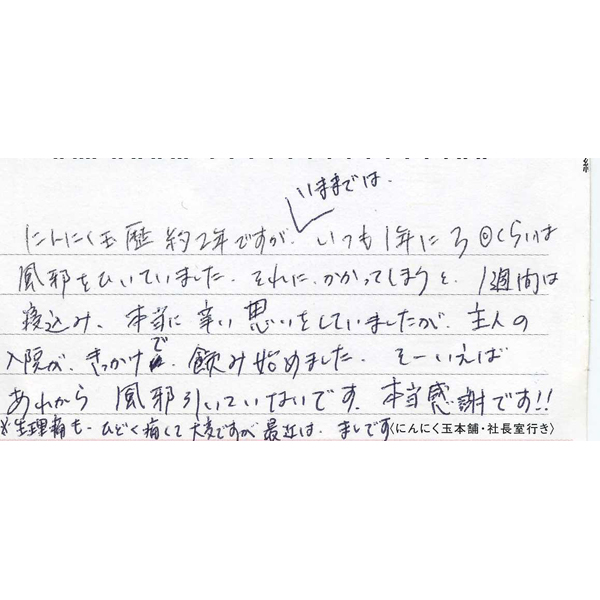 いままでは、
にんにく玉歴約2年ですが、いつも1年に3回くらいは
風邪をひいていました。それに、かかってしまうと、1週間は
寝込み、本当に辛い思いをしていましたが、主人の
入院が、きっかけで、飲み始めました。そーいえば
あれから 風邪引いていないです。本当感謝です!!
※生理痛も、ひどく痛くて大変ですが最近は、ましです〈にんにく玉本舗・社長室行き〉